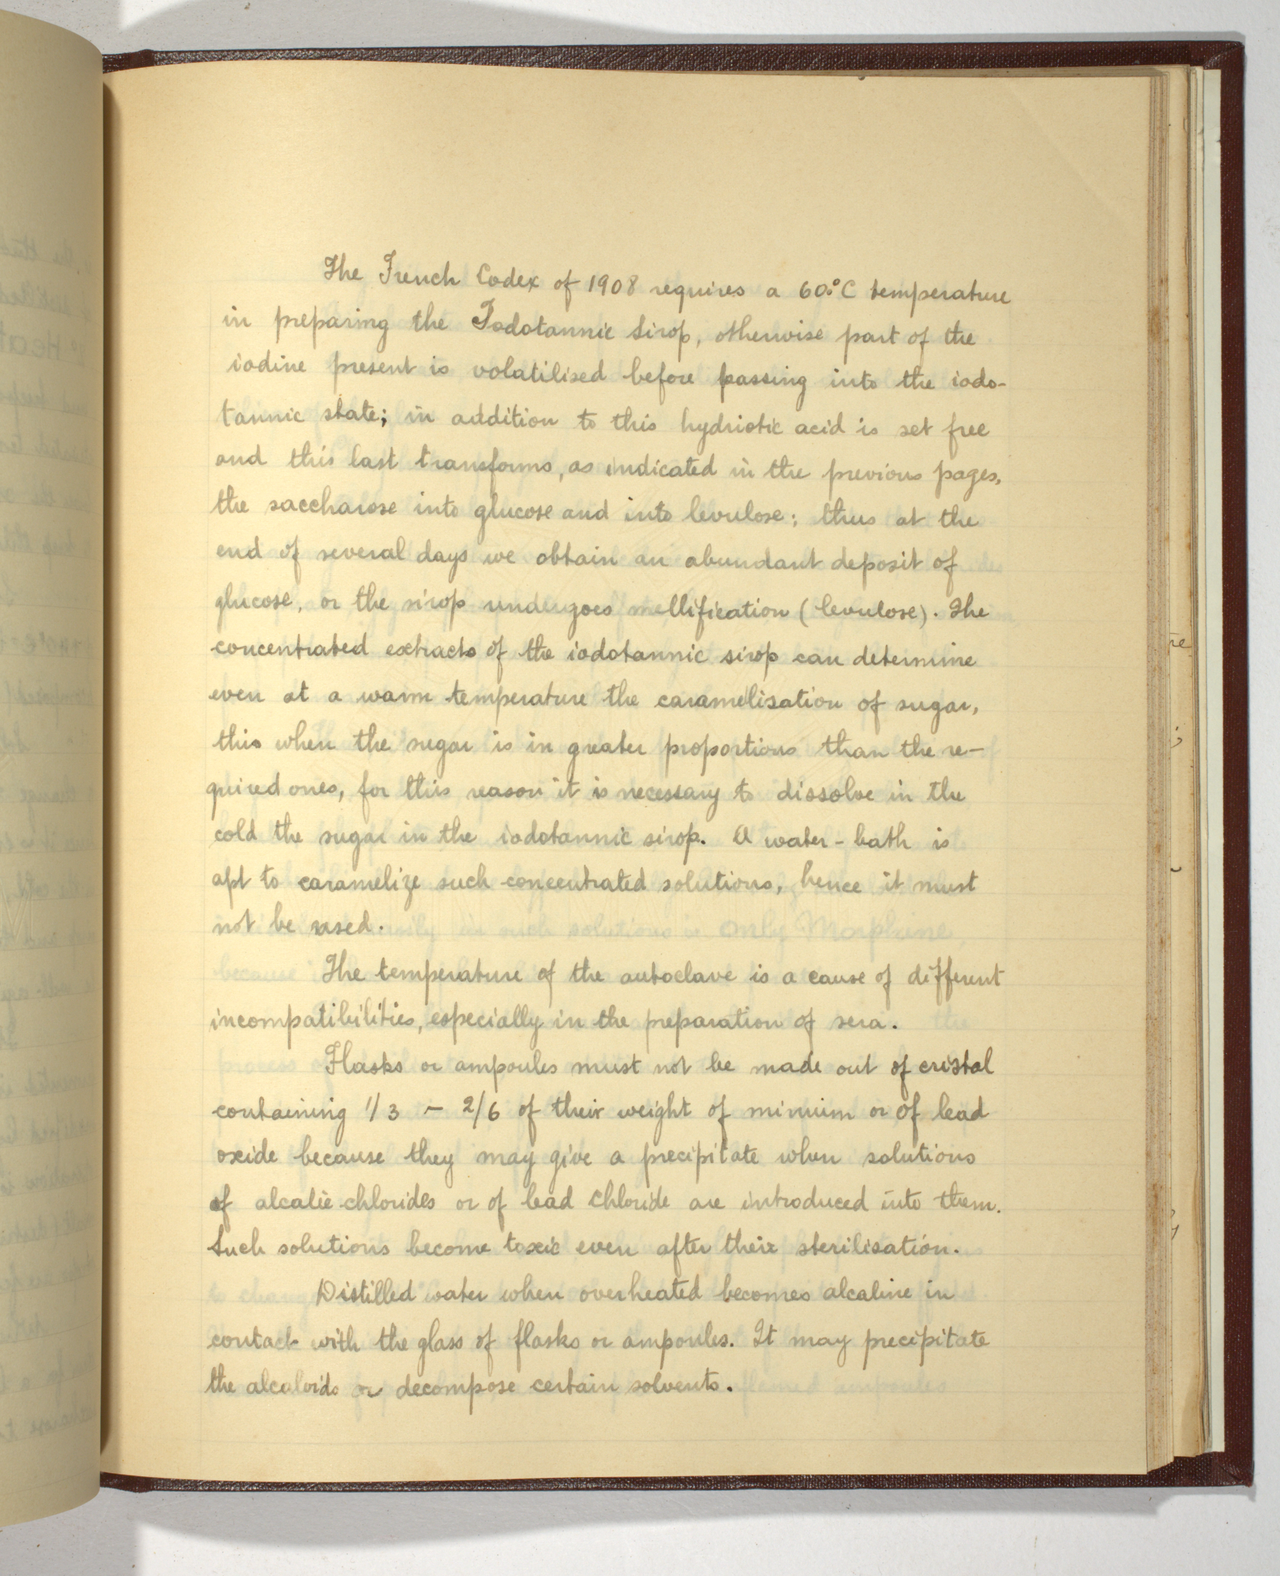 The French Codex of 1908 requires a 60°C temperature
in preparing the Iodotannic Sirop, otherwise part of the
iodine present is volatilised before passing into the iodo-
tannic state; in addition to this hydriotic acid is set free
and this last transforms, as indicated in the previous pages,
the saccharose into glucose and into levulose; thus at the
end of several days we obtain an abundant deposit of
glucose, or the sirop undergoes mellification (levulose). The
concentrated extracts of the iodotannic sirop can determine
even at a warm temperature the caramelisation of sugar,
this when the sugar is in greater proportions than the re-
quired ones, for this reason it is necessary to dissolve in the
cold the sugar in the iodotannic sirop. A water-bath is
apt to caramelize such concentrated solutions, hence it must
not be used.
The temperature of the autoclave is a cause of different
incompatibilities, especially in the preparation of sera.
Flasks or ampoules must not be made out of cristal
containing 1/3 - 2/6 of their weight of minium or of lead
oxide because they may give a precipitate when solutions
of alcalie chlorides or of lead chloride are introduced into them.
Such solutions become toxic even after their sterilisation.
Distilled water when overheated becomes alcaline in
contact with the glass of flasks or ampoules. It may precipitate
the alcaloids or decompose certain solvents.